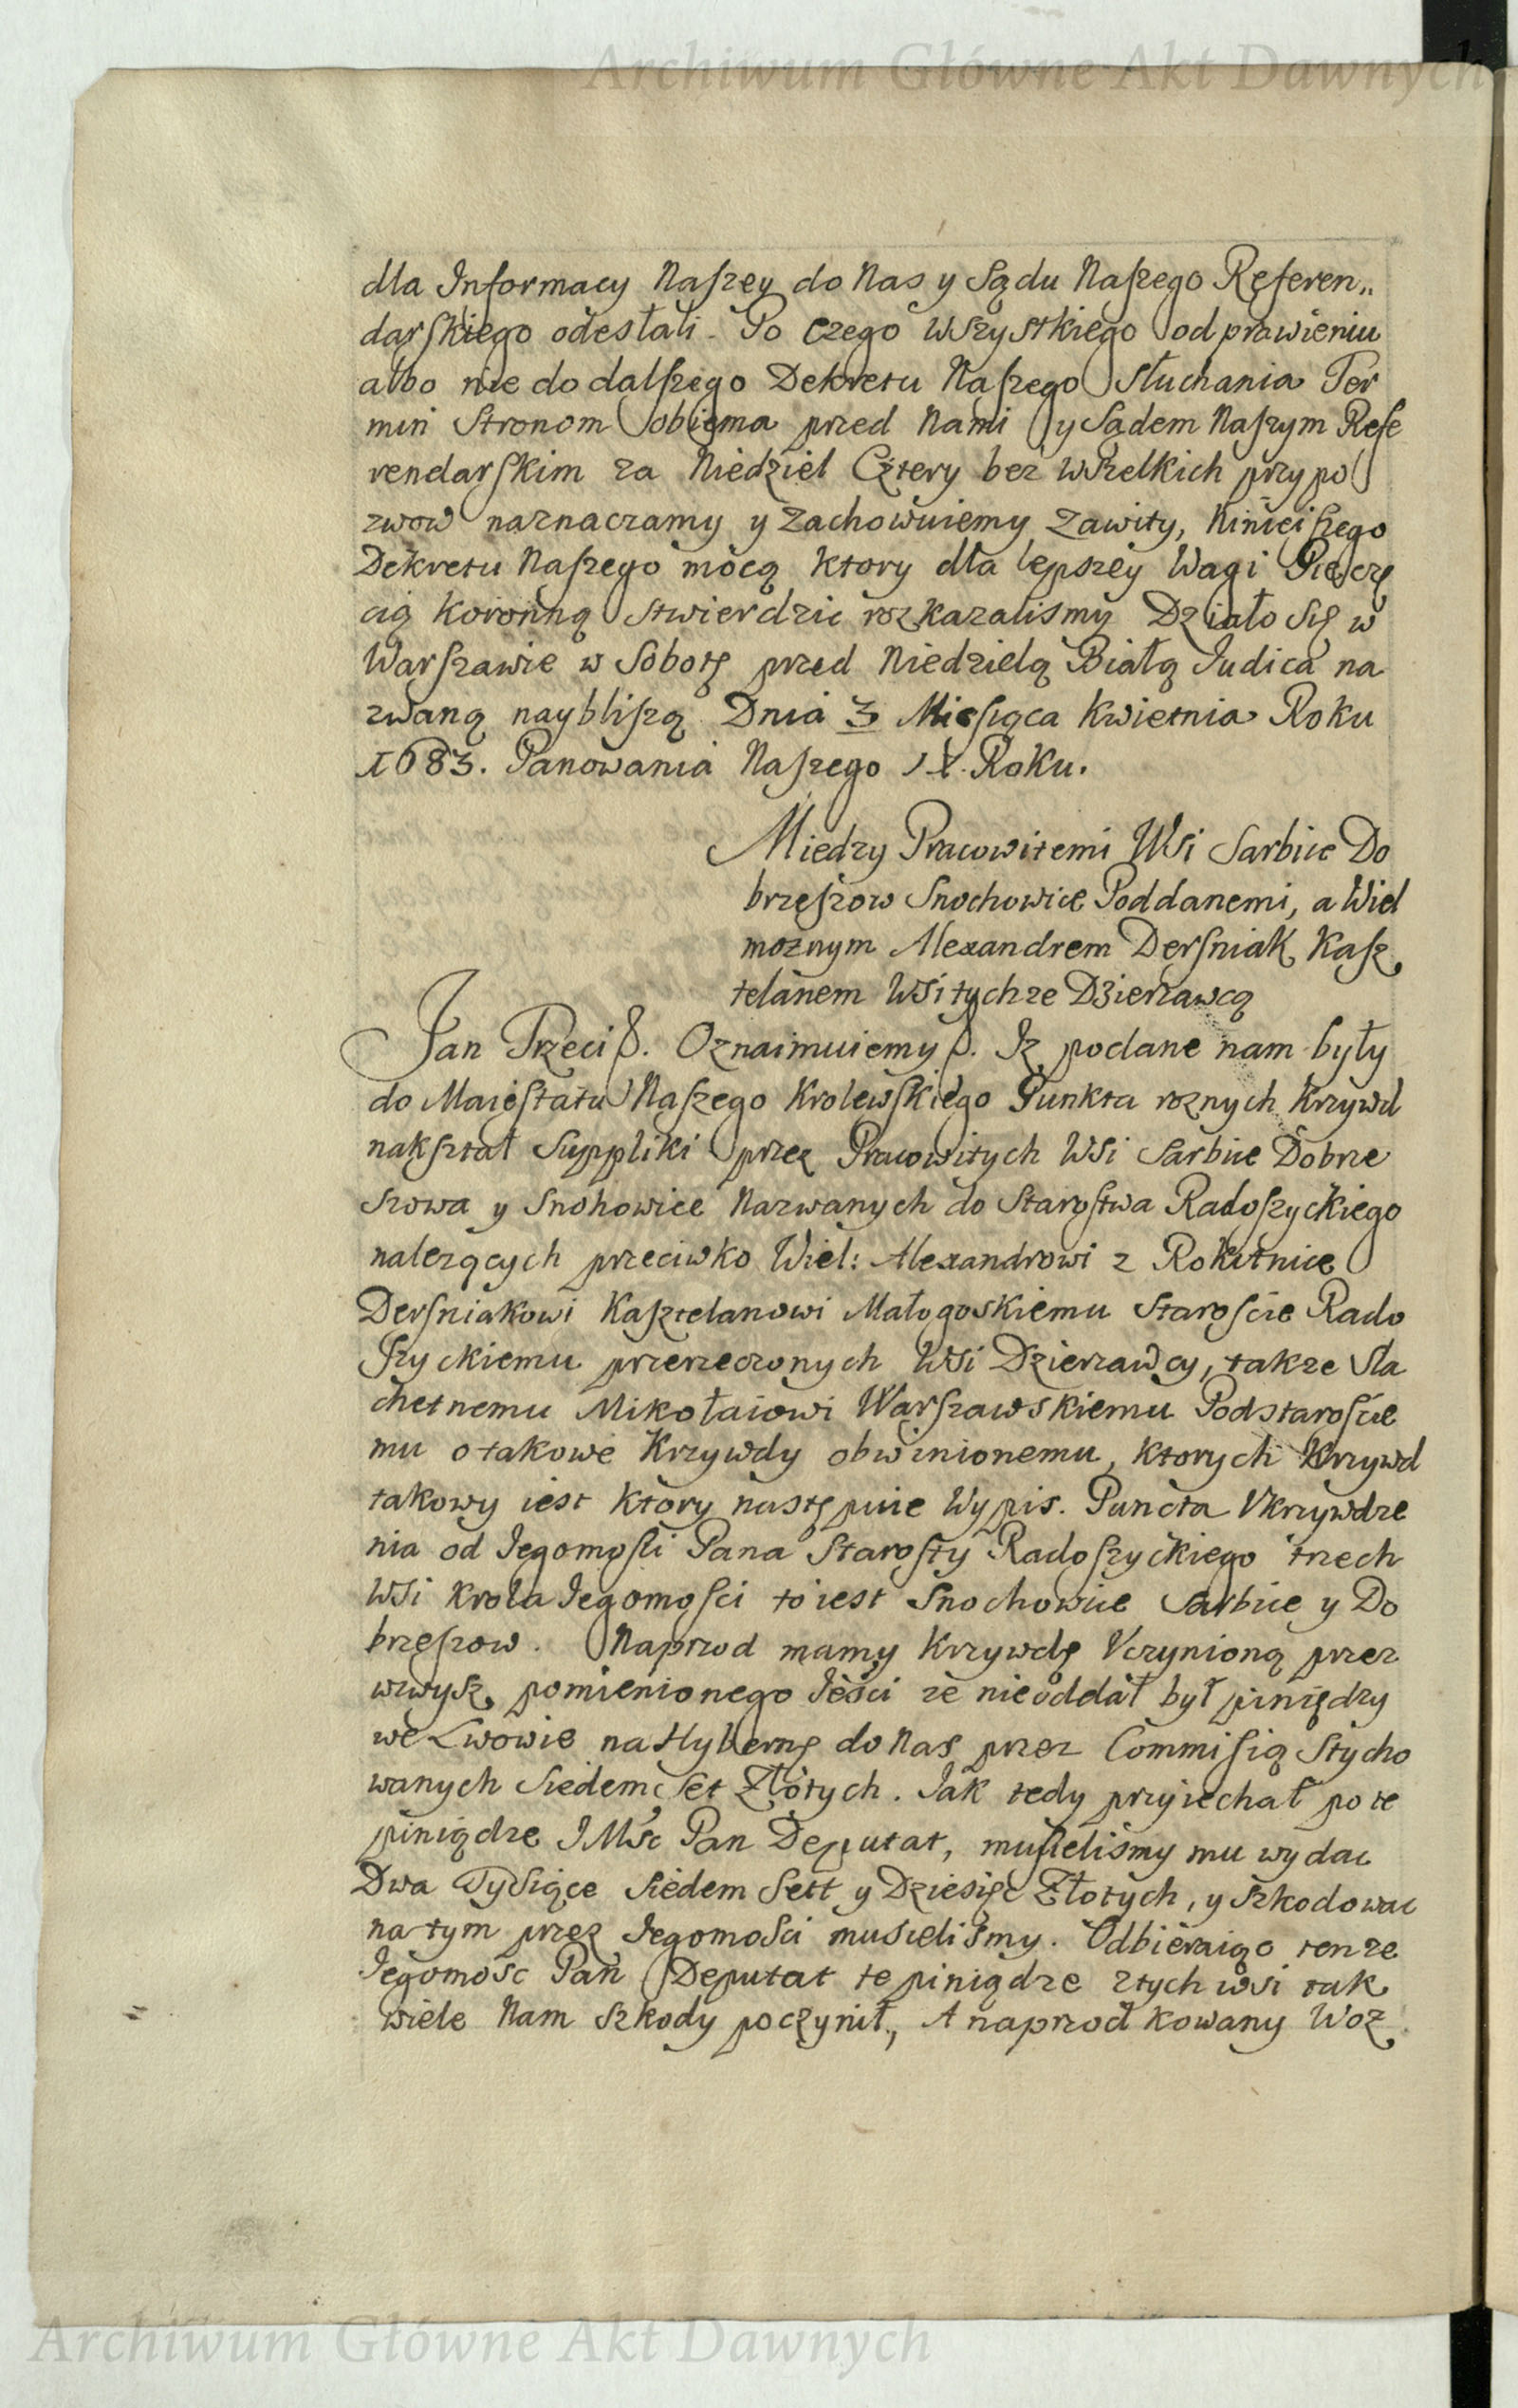 Archiwum Główne Akt Dawnych
dla Informacy Naszey do Nas y Sądu Naszego Referen„
darskiego odesłali. Po czego wszystkiego odprawieniu
albo nie do dalszego Dekretu Naszego słuchania Ter
min Stronom obiema przed Nami y Sądem Naszym Refe
rendarskim za Niedziel Cztery bez wszelkich przypo
zwow naznaczamy y zachowuiemy zawity, Ninieiszego
Dekretu Naszego mocą ktory dla lepszey Wagi Pieczę
cią Koronną stwierdzic rozkazalismy Działo się w
Warszawie w Sobotę przed Niedzielą Białą Iudica na
zwaną naybliszą Dnia 3 Miesiąca Kwietnia Roku
1683. Panowania Naszego IX. Roku.
Miedzy Pracowitemi Wsi Sarbice Do
brzeszow Snochowice Poddanemi, a Wiel
moznym Alexandrem Dersniak Kasz
telanem Wsi tychze Dzierzawcą
Jan Trzeci &. Oznaimuiemy &. Iz podane nam były
do Maiestatu Naszego Krolewskiego Punkta roznych Krzywd
nakształ Suppliki przez Pracowitych Wsi Sarbice Dobrze
szowa y Snohowice Nazwanych do Starostwa Radoszyckiego
nalezących przeciwko Wiel: Alexandrowi z Rokitnice
Dersniakowi Kasztelanowi Małogoskiemu Staroscie Rado
szyckiemu przerzeczonych Wsi Dzierzawcy, takze Sla
chetnemu Mikołaiowi Warszawskiemu Podstaroście
mu o takowe Krzywdy obwinionemu, ktorych Krzywd
takowy iest ktory następuie Wypis. Puncta Vkrzywdze
nia od Iegomosci Pana Starosty Radoszyckiego trzech
Wsi Krola Iegomosci to iest Snochowice Sarbice y Do
brzeszow. Naprzod mamy Krzywdę Vczynioną przez
wzwysz pomienionego Ieści ze nieoddał był piniędzy
we Lwowie na Hybernę do Nas przez Commisią Stycho
wanych Siedem Set Złotych. Iak tedy przyiechał po te
piniądze IMśc Pan Deputat, musielismy mu wydac
Dwa Tysiące Siedem Sett y Dziesięc Złotych, y szkodowac
na tym przez Iegomosci musielismy. Odbieraiąc tenze
Iegomosc Pan Deputat te piniądze z tych wsi tak
wiele Nam szkody poczynił, A naprzod kowany Woz
Archiwum Główne Akt Dawnych